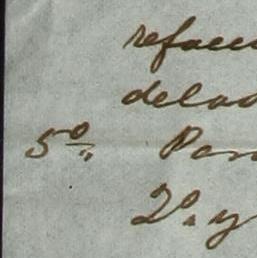 refacc
delas
5º Par
2º y